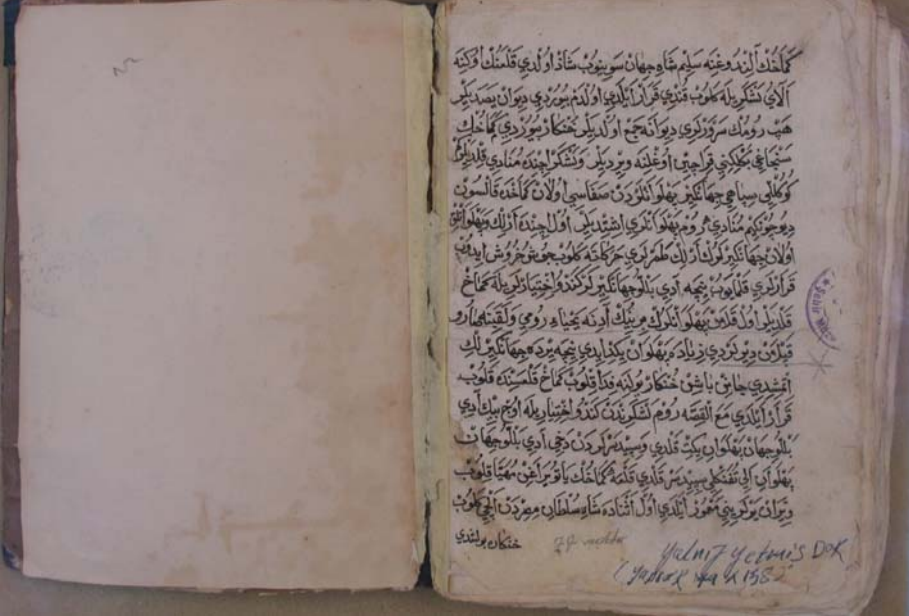 كماخك الندوغنه سليم شاه جهان سوينوب شاذ اولدي قلعنك اوكنه
الاي لشكريله كلوب قندي قرار ايلدي اولدم بيوردي ديوان يصديلر
هپ رومك سرورلري ديوانه جمع اولديلر خنكار بيوردي كماخك
سنجاغي قراچين اوغلنه ويرديلر ولشكر اچنده منادي قلديلر
كوكللي سپاهي جهانكير پهلوانلردن صفاسي اولان كماخده قالسون
ديو چونكيم منادي روم پهلوانلري اشتديلر اول اچنده ارلك وپهلوانلق
اولان جهانكيرلوك ارلك طمرلري حركاته كلوب جوش خروش ايدوب
قرارلري قلمايوب نيچه ادي بللو جهانكيرلر كندو اختيارلريله كماخ
قلديلر اول قلان پهلوانلرك برينك ادنه يحياء رومي ولقبنه
ديرلردي زياده پهلوان يكت ايدي نيچه يرده جهانكيرلك
اتمشدي جان باشن خنكار يولنه فدا قلوب كماخ قلعسنده قلوب
قرار ايلدي مع القصه روم لشكرندن كندو اختياريله اوچ بيك ادي
بللو جهان پهلوان يكت قلدي وسپهدن دخي ادي بللو جهان
پهلوان الي تفنكلي قلدي قلعه كماخك يات يراغن مهيا قلوب
ويران يرلريني معمور ايلدي اول اثناده شاه سلطان مصردن ايلچي كلوب
خنكار بولندي
Yalnız yetmiş
1582